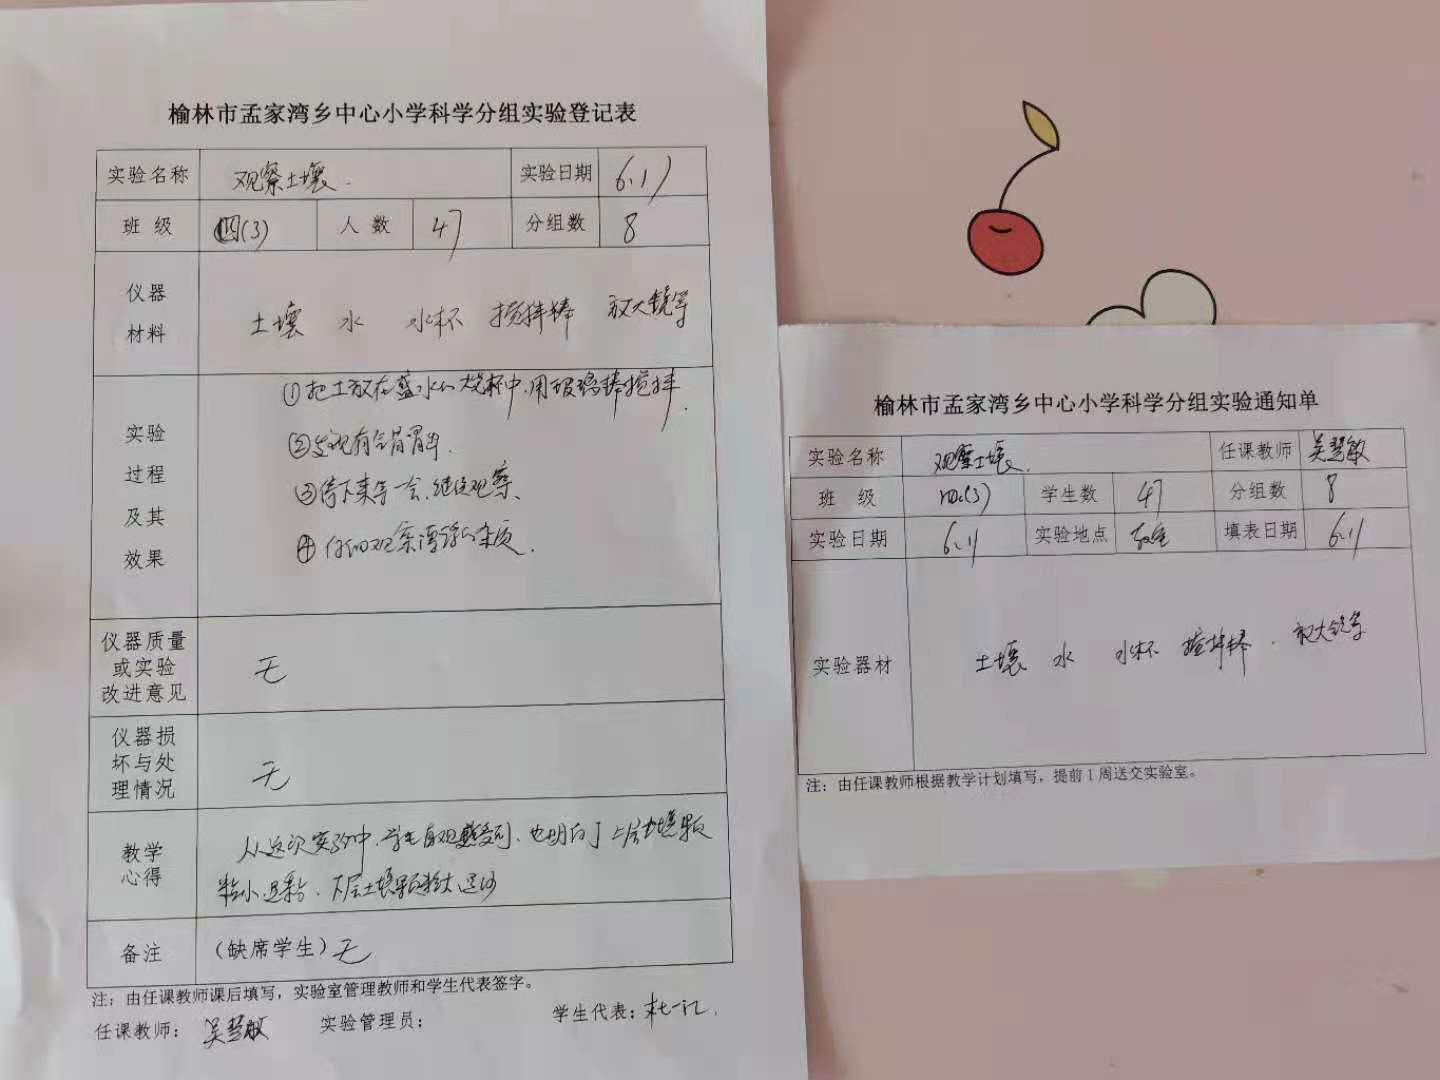 榆林市孟家湾乡中心小学科学分组实验登记表
实验名称 观察土壤. 实验日期
班 级 四(3) 人 数 47 分组数 8
仪器
材料
土壤 水 水杯 搅拌棒 放大镜等
实验
过程
及其
效果
①把土放在盛水的烧杯中,用玻璃棒搅拌.
②发现有气冒出.
③停下来等一会,继续观察、
④仔细观察漂浮的杂质.
仪器质量
或实验
改进意见
无
仪器损
坏与处
理情况
无
教学
心得
从这次实验中,学生直观感受到,也明白了上层土壤颗
粒小是粘、下层土壤颗粒大是沙
备注 (缺席学生) 无
注:由任课教师课后填写,实验室管理教师和学生代表签字。
任课教师: 吴慧敏 实验管理员: 学生代表:
榆林市孟家湾乡中心小学科学分组实验通知单
实验名称 观察土壤. 任课教师 吴慧敏
班 级 四.(3) 学生数 47 分组数 8
实验日期 实验地点 教室 填表日期
实验器材 土壤 水 水杯 搅拌棒. 放大镜等
注:由任课教师根据教学计划填写,提前1周送交实验室。